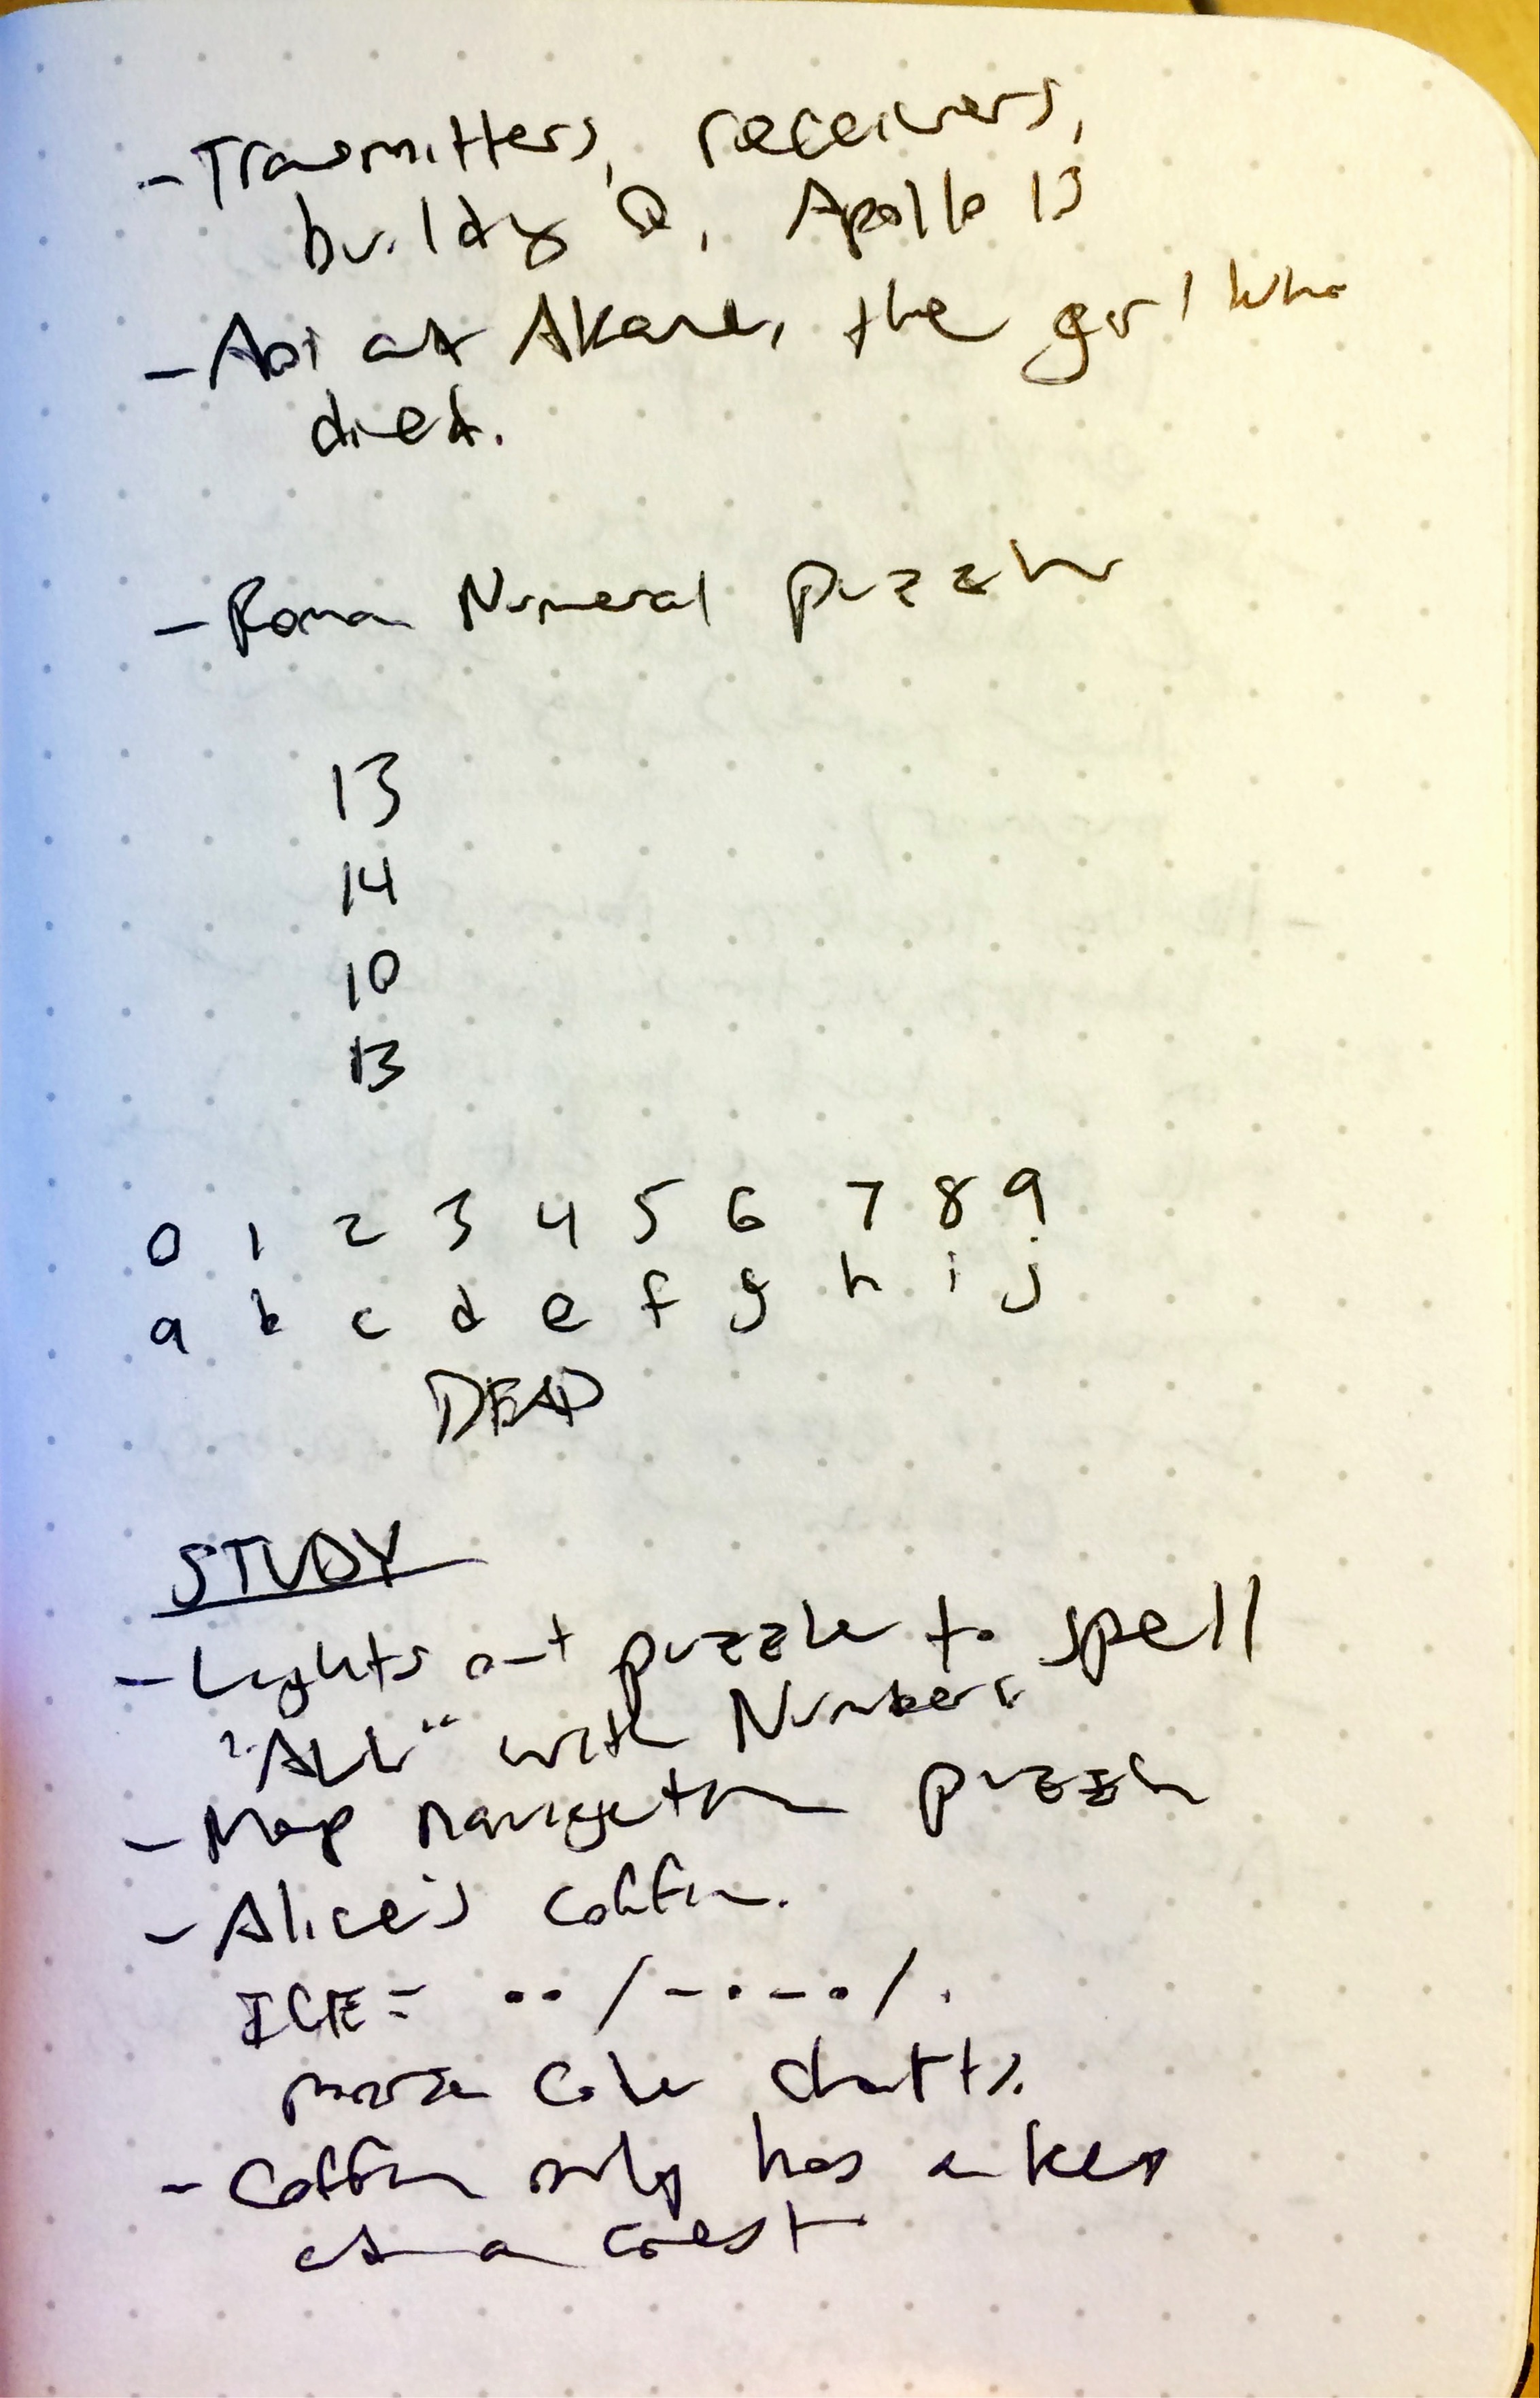 - Transmitters, receivers,
building Q, Apollo 13
- Aoi and Akane, the girl who
died.
- Roman Numeral puzzle
13
14
10
13
0 1 2 3 4 5 6 7 8 9
a b c d e f g h i j
DEAD
STUDY
- Lights out puzzle to spell
"ALL" with Numbers
- Map navigation puzzle
- Alice's coffin.
ICE = •• / -•-• / .
morse code
- Coffin only has a key
and a crest